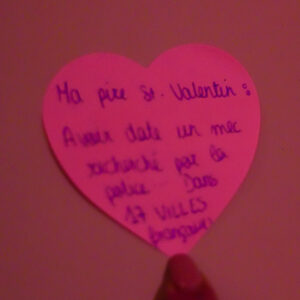 Ma pire St. Valentin :
Avoir date un mec
recherché par la
police. Dans
17 VILLES
françaises